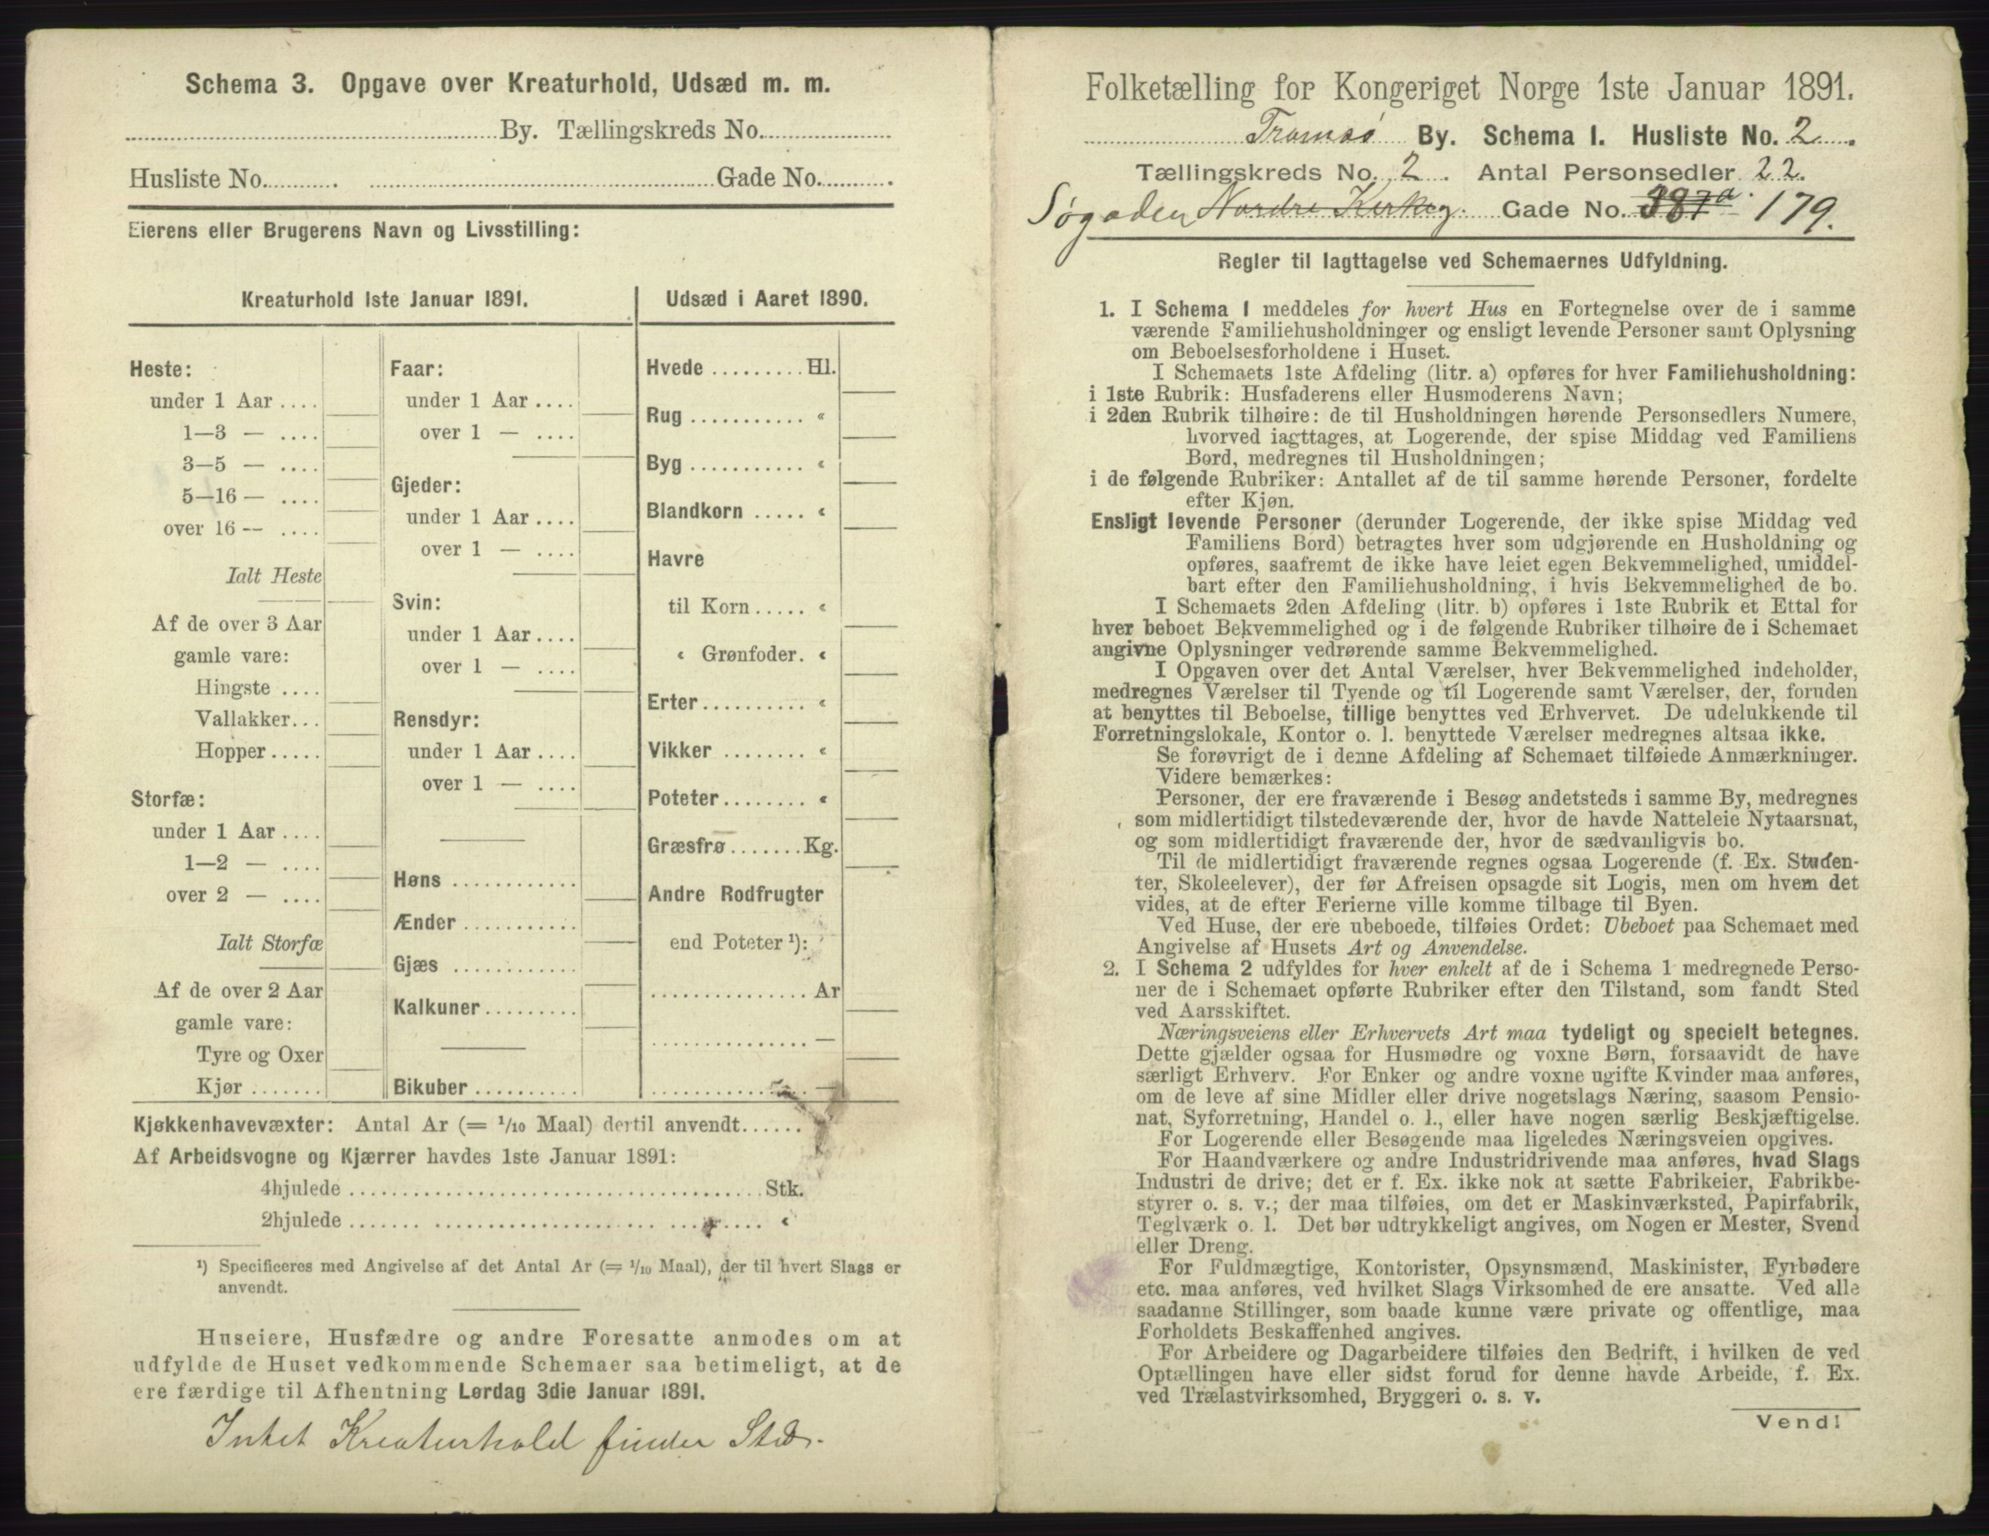 Schema 3. Opgave over Kreaturhold, Udsæd m. m.
By. Tællingskreds No.
Husliste No. Gade No.
Eierens eller Brugerens Navn og Livsstilling:
Kreaturhold 1ste Januar 1891.
Heste:
under 1 Aar ....
1—3 — ....
3—5 — ....
5—16 — ....
over 16 — ....
Ialt Heste
Af de over 3 Aar
gamle vare:
Hingste ....
Vallakker...
Hopper ......
Storfæ:
under 1 Aar ....
1—2 — ....
over 2 — ....
Ialt Storfæ
Af de over 2 Aar
gamle vare:
Tyre og Oxer
Kjør .......
Faar:
under 1 Aar ....
over 1 — ....
Gjeder:
under 1 Aar ....
over 1 — ....
Svin:
under 1 Aar ....
over 1 — ....
Rensdyr:
under 1 Aar ....
over 1 — ....
Høns ............
Ænder ...........
Gjæs ............
Kalkuner .........
Bikuber ..........
Udsæd i Aaret 1890.
Hvede ......... Hl.
Rug ........... «
Byg ........... «
Blandkorn ..... «
Havre
til Korn ..... «
« Grønfoder. «
Erter .......... «
Vikker ......... «
Poteter ........ «
Græsfrø ....... Kg.
Andre Rodfrugter
end Poteter ¹):
............... Ar
............... —
............... —
Kjøkkenhavevæxter: Antal Ar (= 1/10 Maal) dertil anvendt......
Af Arbeidsvogne og Kjærrer havdes 1ste Januar 1891:
4hjulede ........................................ Stk.
2hjulede ........................................ «
¹) Specificeres med Angivelse af det Antal Ar (= 1/10 Maal), der til hvert Slags er
anvendt.
Huseiere, Husfædre og andre Foresatte anmodes om at
udfylde de Huset vedkommende Schemaer saa betimeligt, at de
ere færdige til Afhentning Lørdag 3die Januar 1891.
Intet Kreaturhold finder Sted.
Folketælling for Kongeriget Norge 1ste Januar 1891.
Tromsø By. Schema 1. Husliste No. 2
Tællingskreds No. 2. Antal Personsedler 22.
Søgaden Nordre Kirkeg. Gade No. 387a. 179.
Regler til Iagttagelse ved Schemaernes Udfyldning.
1. I Schema 1 meddeles for hvert Hus en Fortegnelse over de i samme
værende Familiehusholdninger og ensligt levende Personer samt Oplysning
om Beboelsesforholdene i Huset.
I Schemaets 1ste Afdeling (litr. a) opføres for hver Familiehusholdning:
i 1ste Rubrik: Husfaderens eller Husmoderens Navn;
i 2den Rubrik tilhøire: de til Husholdningen hørende Personsedlers Numere,
hvorved iagttages, at Logerende, der spise Middag ved Familiens
Bord, medregnes til Husholdningen;
i de følgende Rubriker: Antallet af de til samme hørende Personer, fordelte
efter Kjøn.
Ensligt levende Personer (derunder Logerende, der ikke spise Middag ved
Familiens Bord) betragtes hver som udgjørende en Husholdning og
opføres, saafremt de ikke have leiet egen Bekvemmelighed, umiddel-
bart efter den Familiehusholdning, i hvis Bekvemmelighed de bo.
I Schemaets 2den Afdeling (litr. b) opføres i 1ste Rubrik et Ettal for
hver beboet Bekvemmelighed og i de følgende Rubriker tilhøire de i Schemaet
angivne Oplysninger vedrørende samme Bekvemmelighed.
I Opgaven over det Antal Værelser, hver Bekvemmelighed indeholder,
medregnes Værelser til Tyende og til Logerende samt Værelser, der, foruden
at benyttes til Beboelse, tillige benyttes ved Erhvervet. De udelukkende til
Forretningslokale, Kontor o. l. benyttede Værelser medregnes altsaa ikke.
Se forøvrigt de i denne Afdeling af Schemaet tilføiede Anmærkninger.
Videre bemærkes:
Personer, der ere fraværende i Besøg andetsteds i samme By, medregnes
som midlertidigt tilstedeværende der, hvor de havde Natteleie Nytaarsnat,
og som midlertidigt fraværende der, hvor de sædvanligvis bo.
Til de midlertidigt fraværende regnes ogsaa Logerende (f. Ex. Studen-
ter, Skoleelever), der før Afreisen opsagde sit Logis, men om hvem det
vides, at de efter Ferierne ville komme tilbage til Byen.
Ved Huse, der ere ubeboede, tilføies Ordet: Ubeboet paa Schemaet med
Angivelse af Husets Art og Anvendelse.
2. I Schema 2 udfyldes for hver enkelt af de i Schema 1 medregnede Perso-
ner de i Schemaet opførte Rubriker efter den Tilstand, som fandt Sted
ved Aarsskiftet.
Næringsveiens eller Erhvervets Art maa tydeligt og specielt betegnes.
Dette gjælder ogsaa for Husmødre og voxne Børn, forsaavidt de have
særligt Erhverv. For Enker og andre voxne ugifte Kvinder maa anføres,
om de leve af sine Midler eller drive nogetslags Næring, saasom Pensio-
nat, Syforretning, Handel o. l., eller have nogen særlig Beskjæftigelse.
For Logerende eller Besøgende maa ligeledes Næringsveien opgives.
For Haandværkere og andre Industridrivende maa anføres, hvad Slags
Industri de drive; det er f. Ex. ikke nok at sætte Fabrikeier, Fabrikbe-
styrer o. s. v.; der maa tilføies, om det er Maskinværksted, Papirfabrik,
Teglværk o. l. Det bør udtrykkeligt angives, om Nogen er Mester, Svend
eller Dreng.
For Fuldmægtige, Kontorister, Opsynsmænd, Maskinister, Fyrbødere
etc. maa anføres, ved hvilket Slags Virksomhed de ere ansatte. Ved alle
saadanne Stillinger, som baade kunne være private og offentlige, maa
Forholdets Beskaffenhed angives.
For Arbeidere og Dagarbeidere tilføies den Bedrift, i hvilken de ved
Optællingen have eller sidst forud for denne havde Arbeide, f. Ex.
ved Trælastvirksomhed, Bryggeri o. s. v.
Vend!